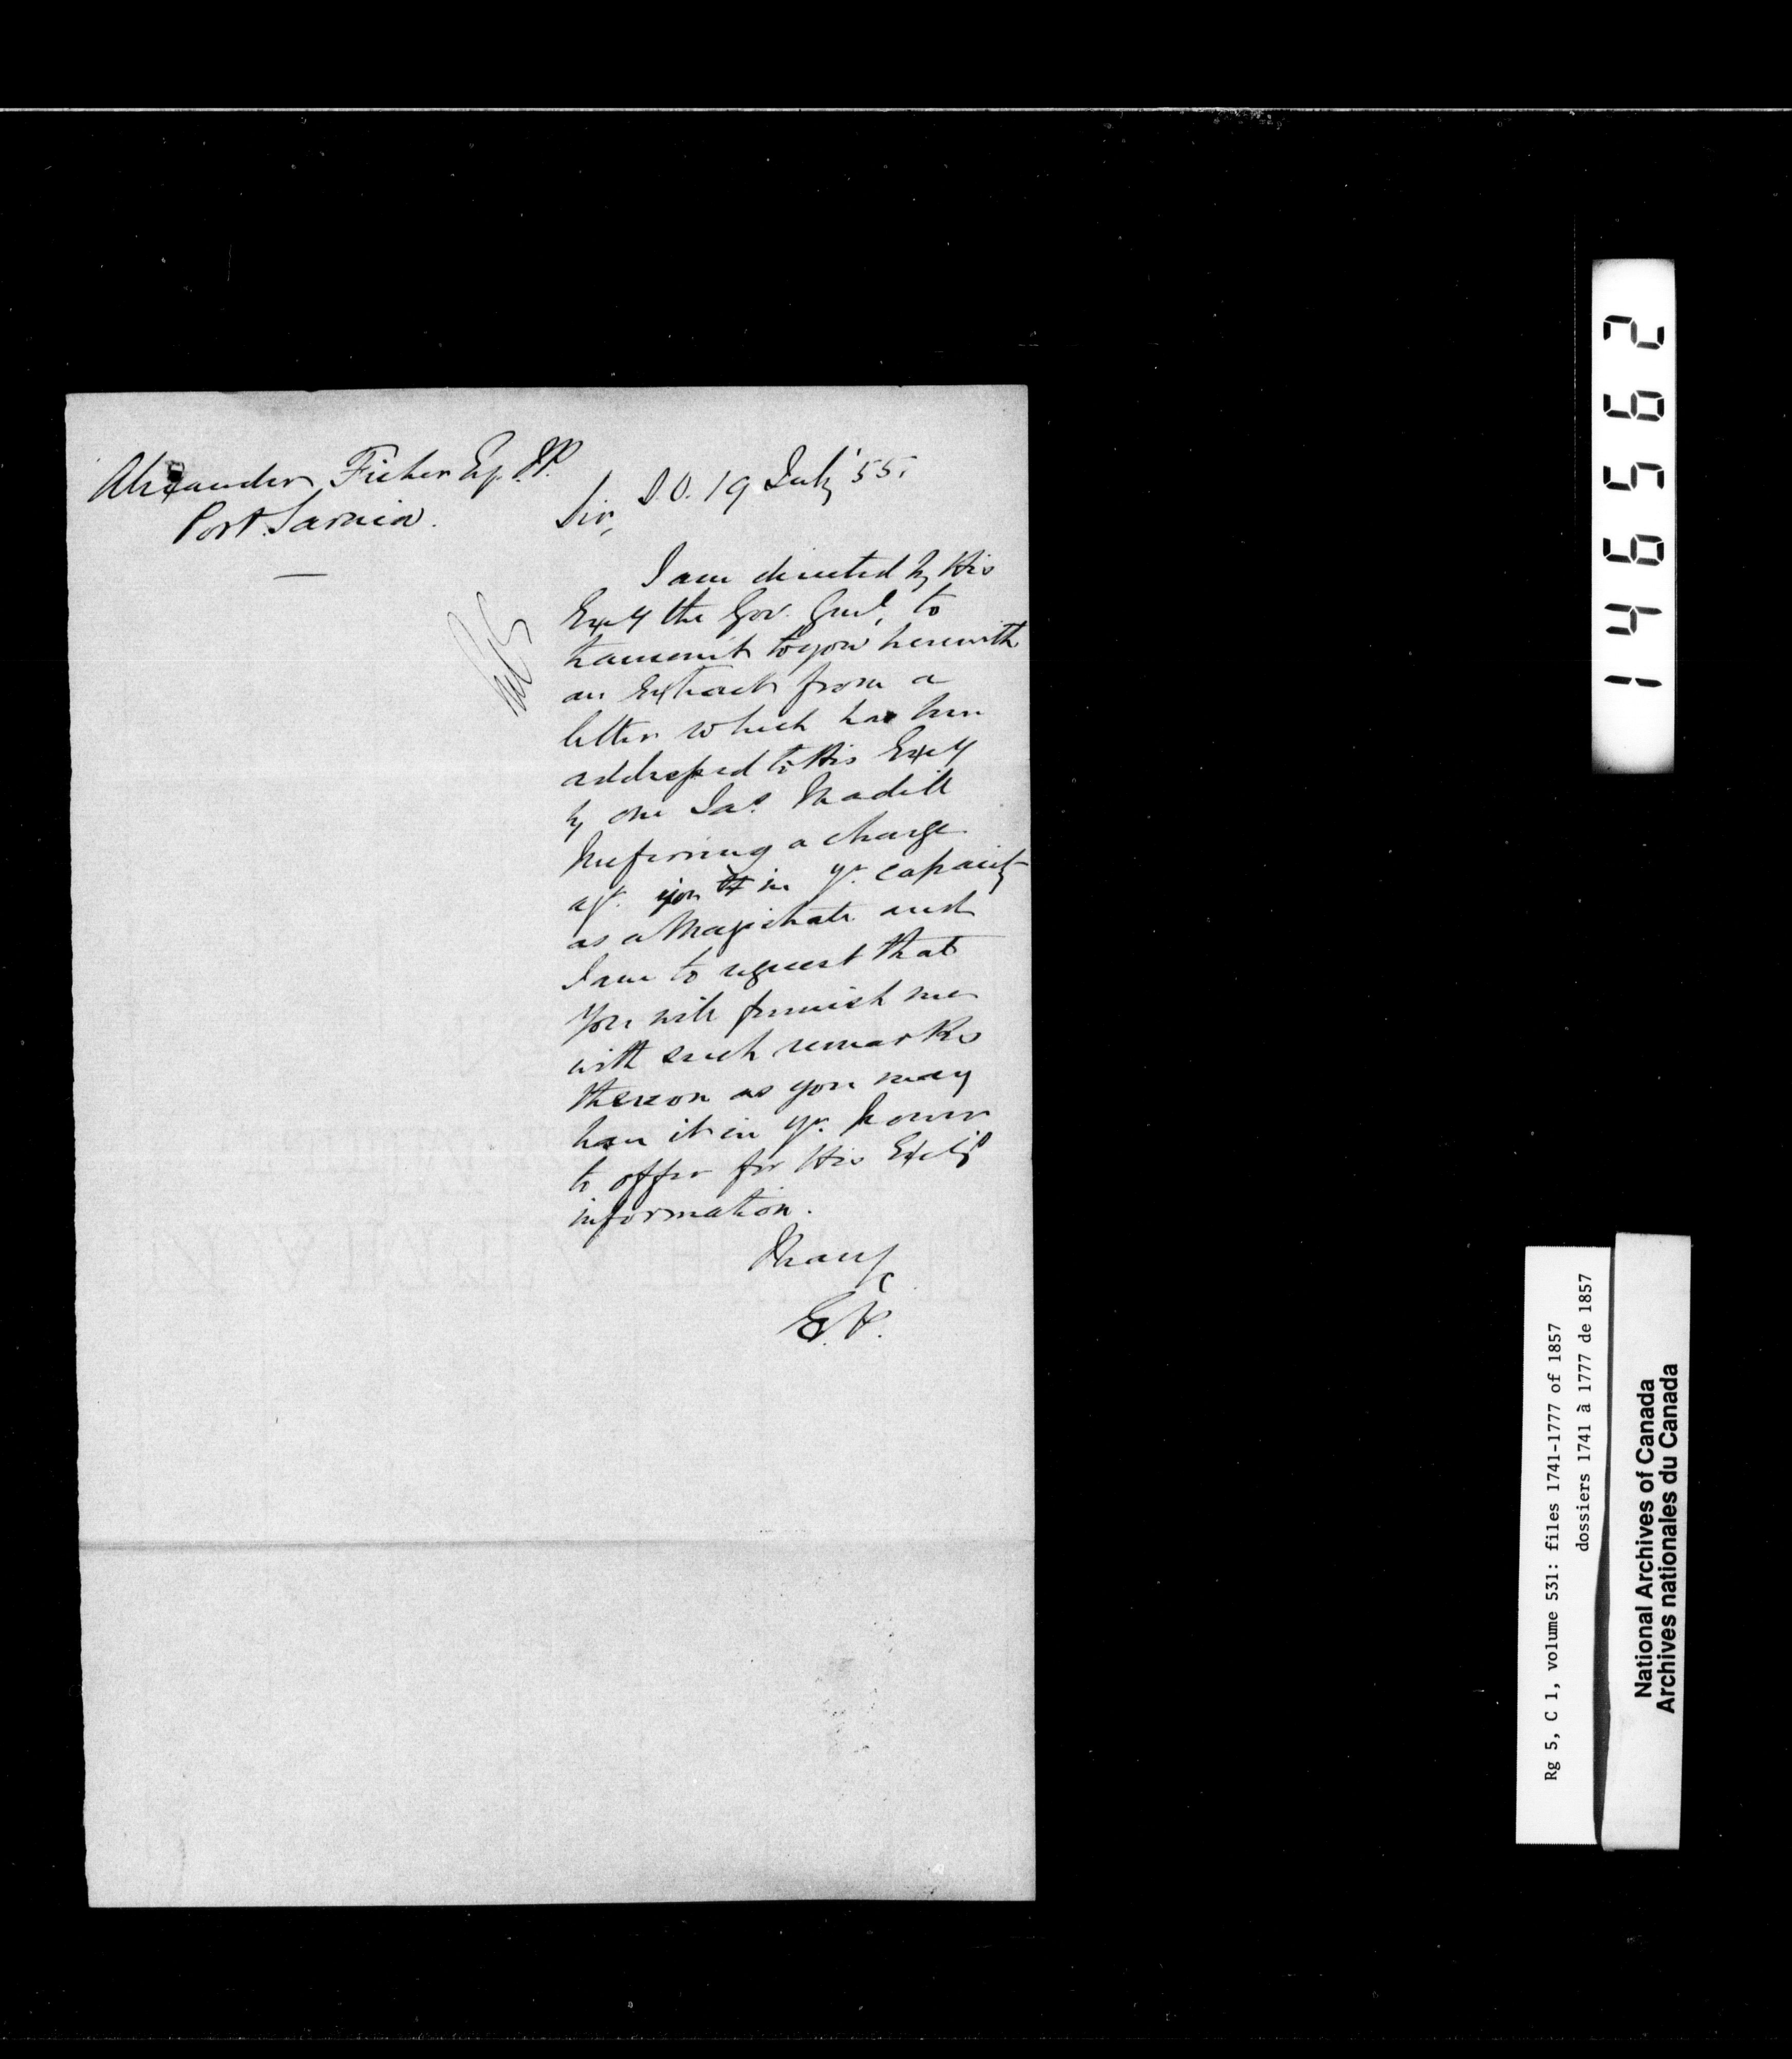 Alexander Fisher Esq. JP.
Port Sarnia.
S.O. 19 July '55.
Sir,
I am directed by His
Excy the Gov. Genl, to
transmit to you herewith
an Extract from a
letter which has been
addressed to His Excy
by one Jas. Madill
preferring a charge
agt. you in yr. capacity
as a Magistrate and
I am to request that
you will furnish me
with such remarks
thereon as you may
have it in yr. power
to offer for His Excy's
information.
I have
&c
E.P.
146562
Rg 5, C 1, volume 531: files 1741-1777 of 1857
dossiers 1741 à 1777 de 1857
National Archives of Canada
Archives nationales du Canada